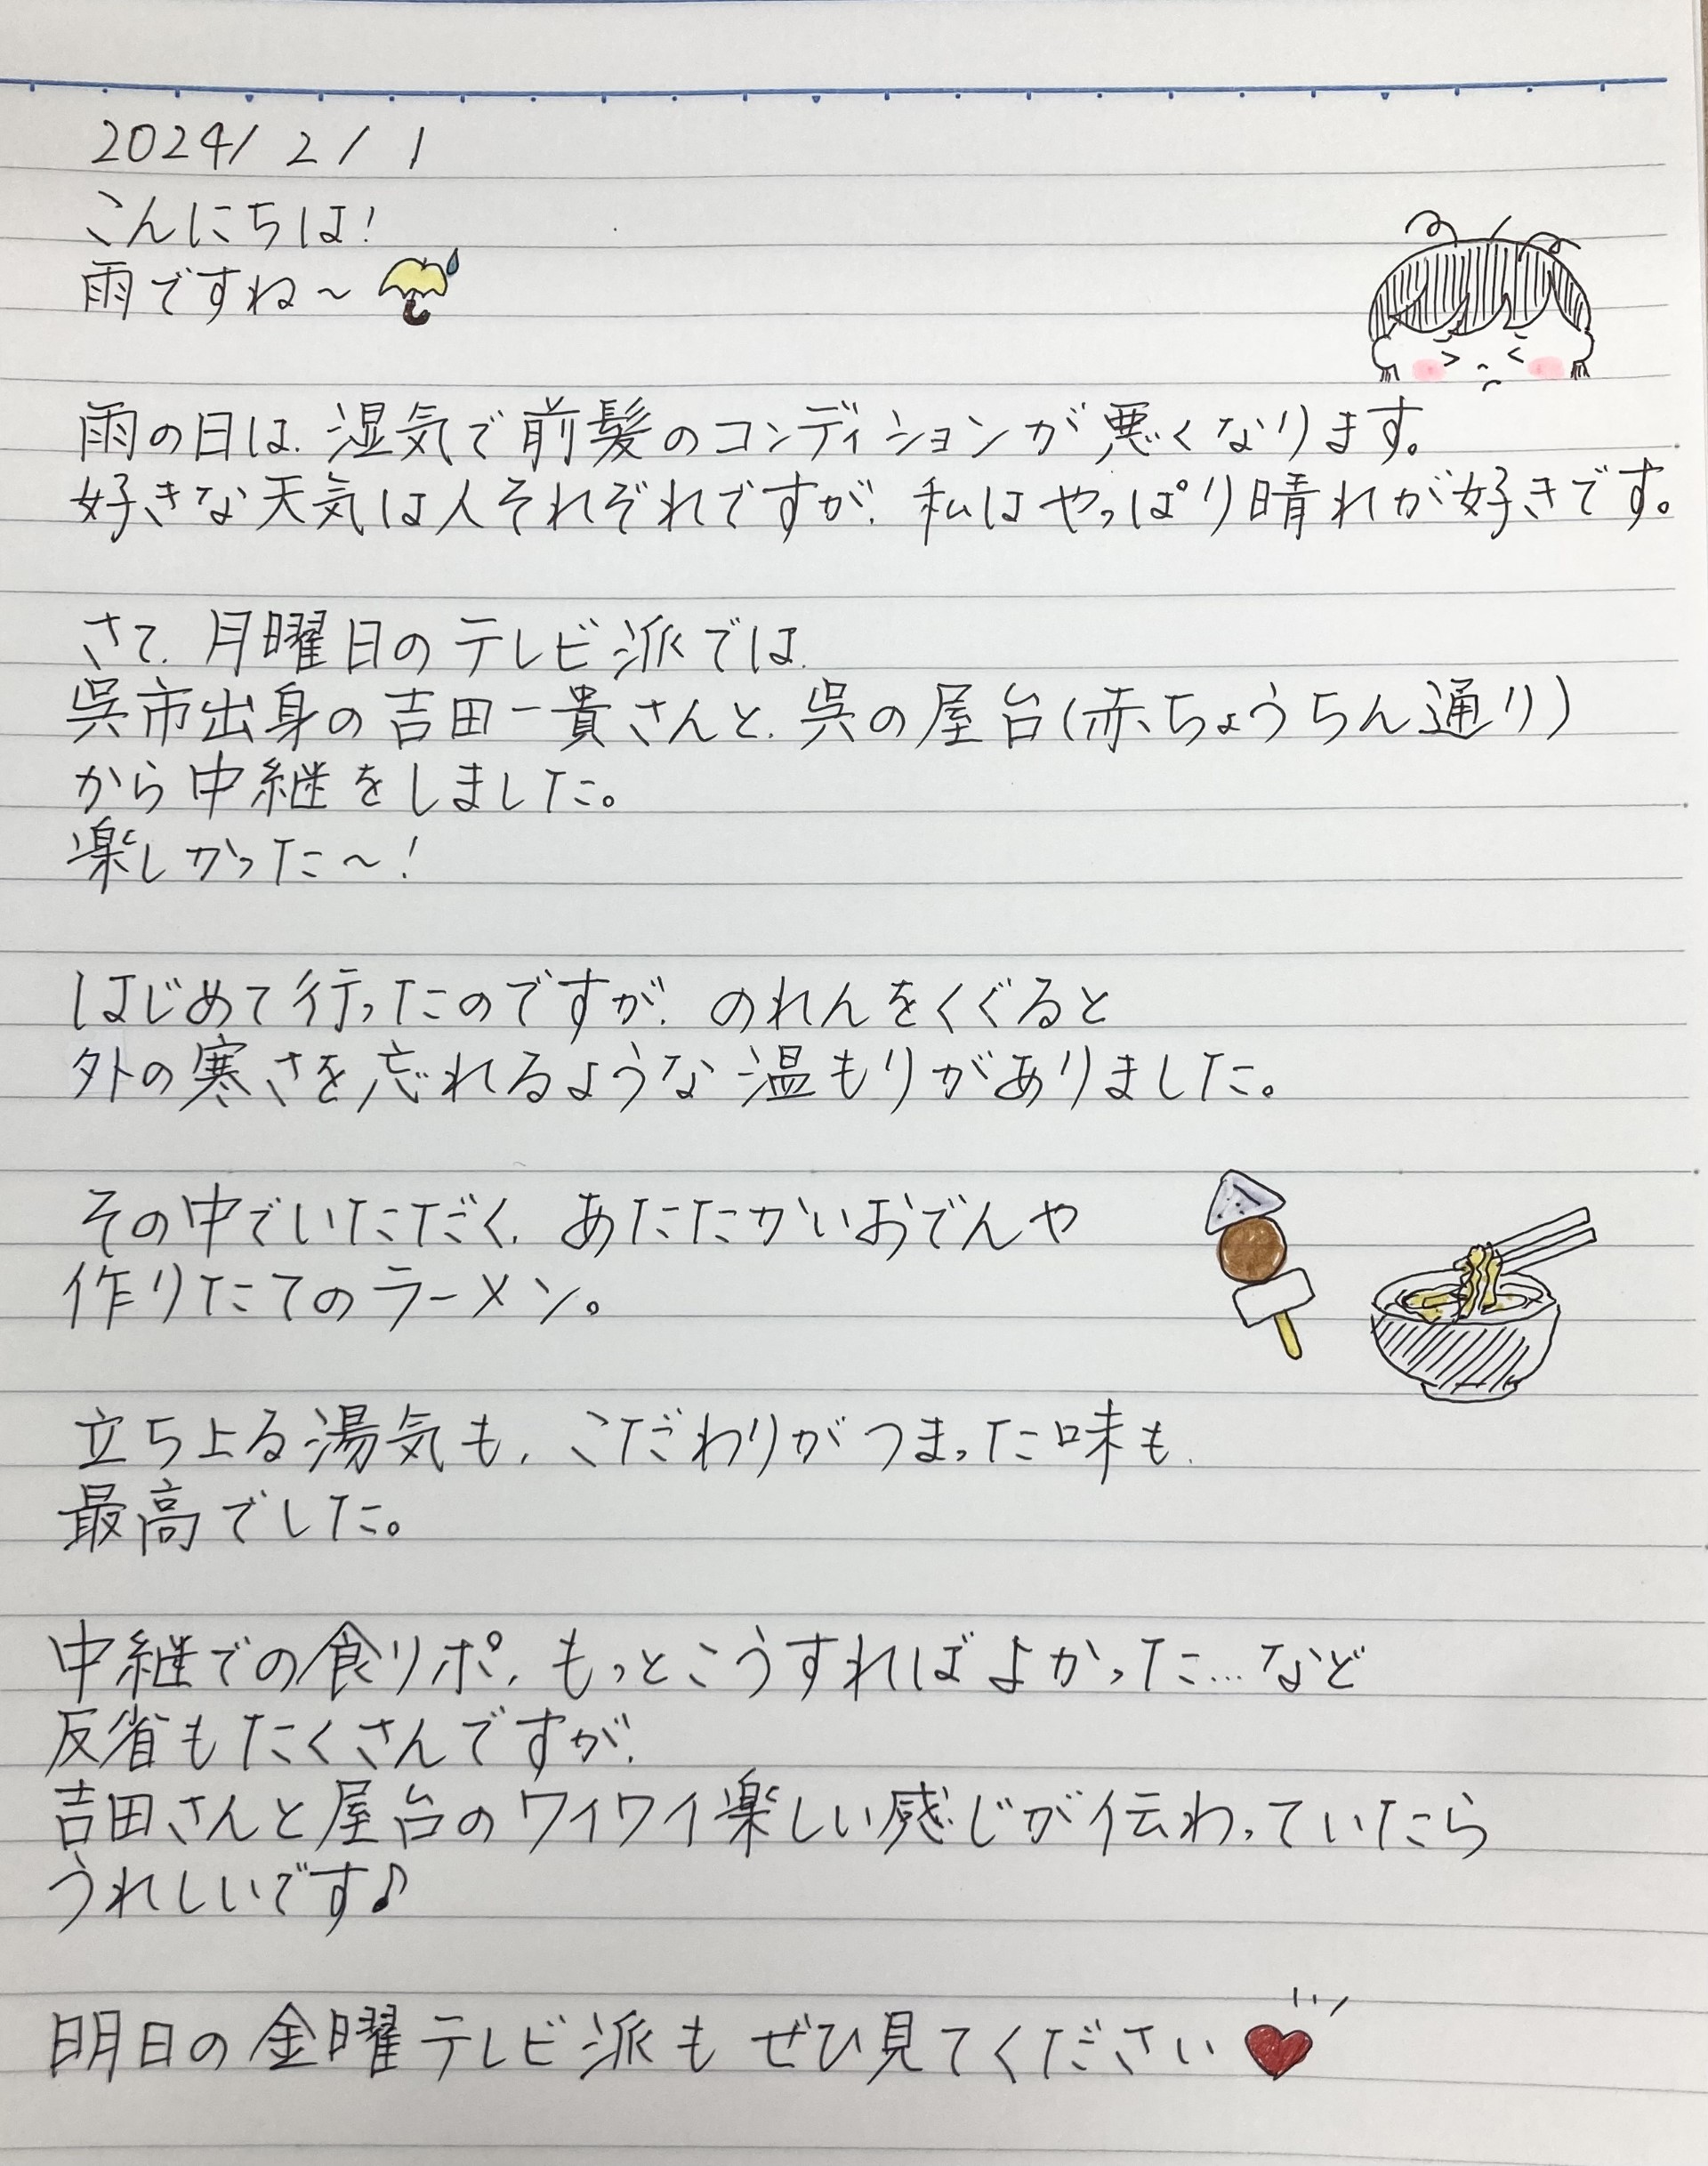 2024/2/1
こんにちは!
雨ですね〜
雨の日は、湿気で前髪のコンディションが悪くなります。
好きな天気は人それぞれですが、私はやっぱり晴れが好きです。
さて、月曜日のテレビ派では、
呉市出身の吉田一貴さんと、呉の屋台(赤ちょうちん通り)
から中継をしました。
楽しかった〜!
はじめて行ったのですが、のれんをくぐると
外の寒さを忘れるような温もりがありました。
その中でいただく、あたたかいおでんや
作りたてのラーメン。
立ち上る湯気も、こだわりがつまった味も、
最高でした。
中継での食リポ、もっとこうすればよかった…など
反省もたくさんですが、
吉田さんと屋台のワイワイ楽しい感じが伝わっていたら
うれしいです♪
明日の金曜テレビ派もぜひ見てください